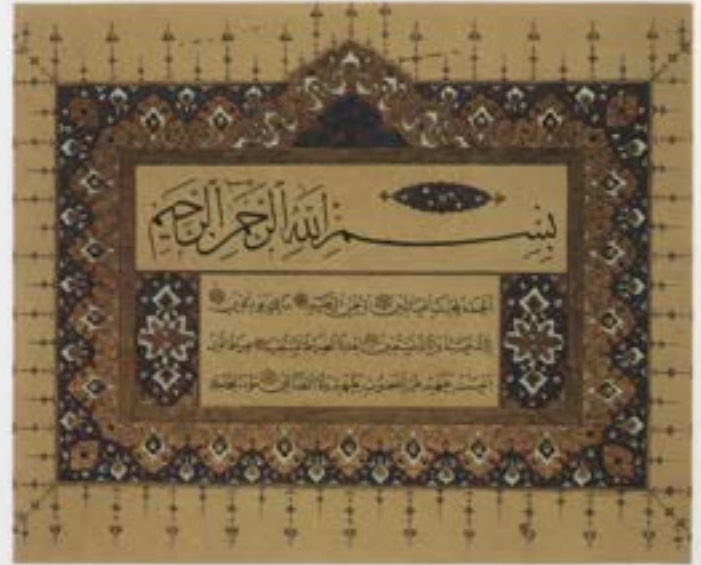 بِسْمِ اللّٰهِ الرَّحْمٰنِ الرَّحِيمِ
الحمد لله رب العالمين الرحمن الرحيم مالك يوم الدين
اياك نعبد واياك نستعين اهدنا الصراط المستقيم صراط الذين
انعمت عليهم غير المغضوب عليهم ولا الضالين